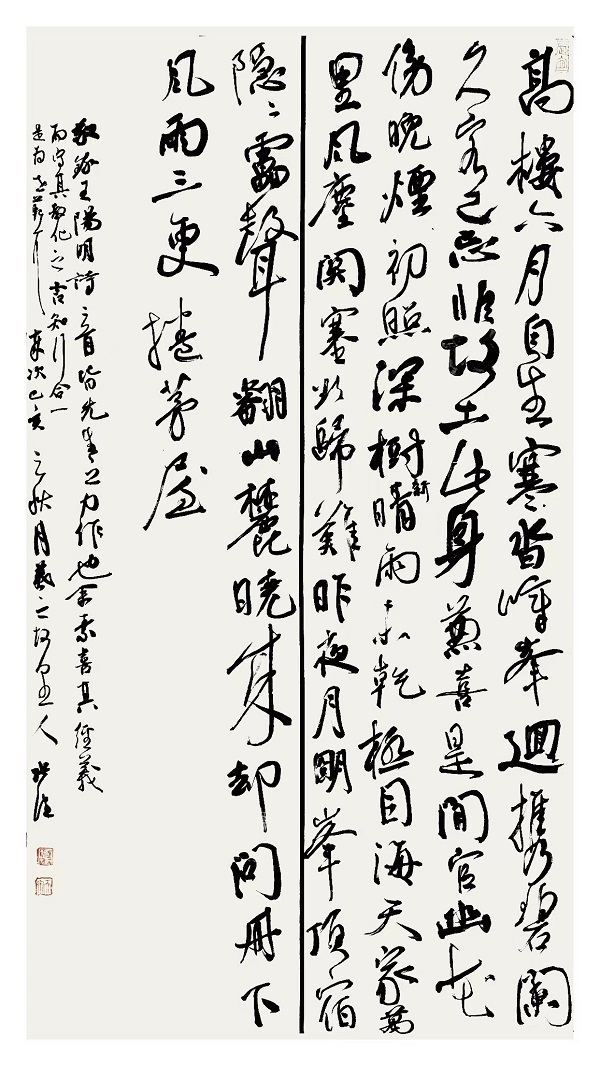 高樓六月自生寒沓嶂峯迴擁碧闌
久客已忘非故土此身兼喜是閒官幽花
傍晚煙初照深樹新晴雨未乾極目海天家萬
里風塵關塞欲歸難昨夜月明峯頂宿
隱〻雷聲翻山麓曉來却問冊下
風雨三更捲茅屋
敬錄王陽明詩二首皆先生之力作也余素喜其經義
而守真教化之言知行合一
是為 歲次己亥之秋月羲之故里人